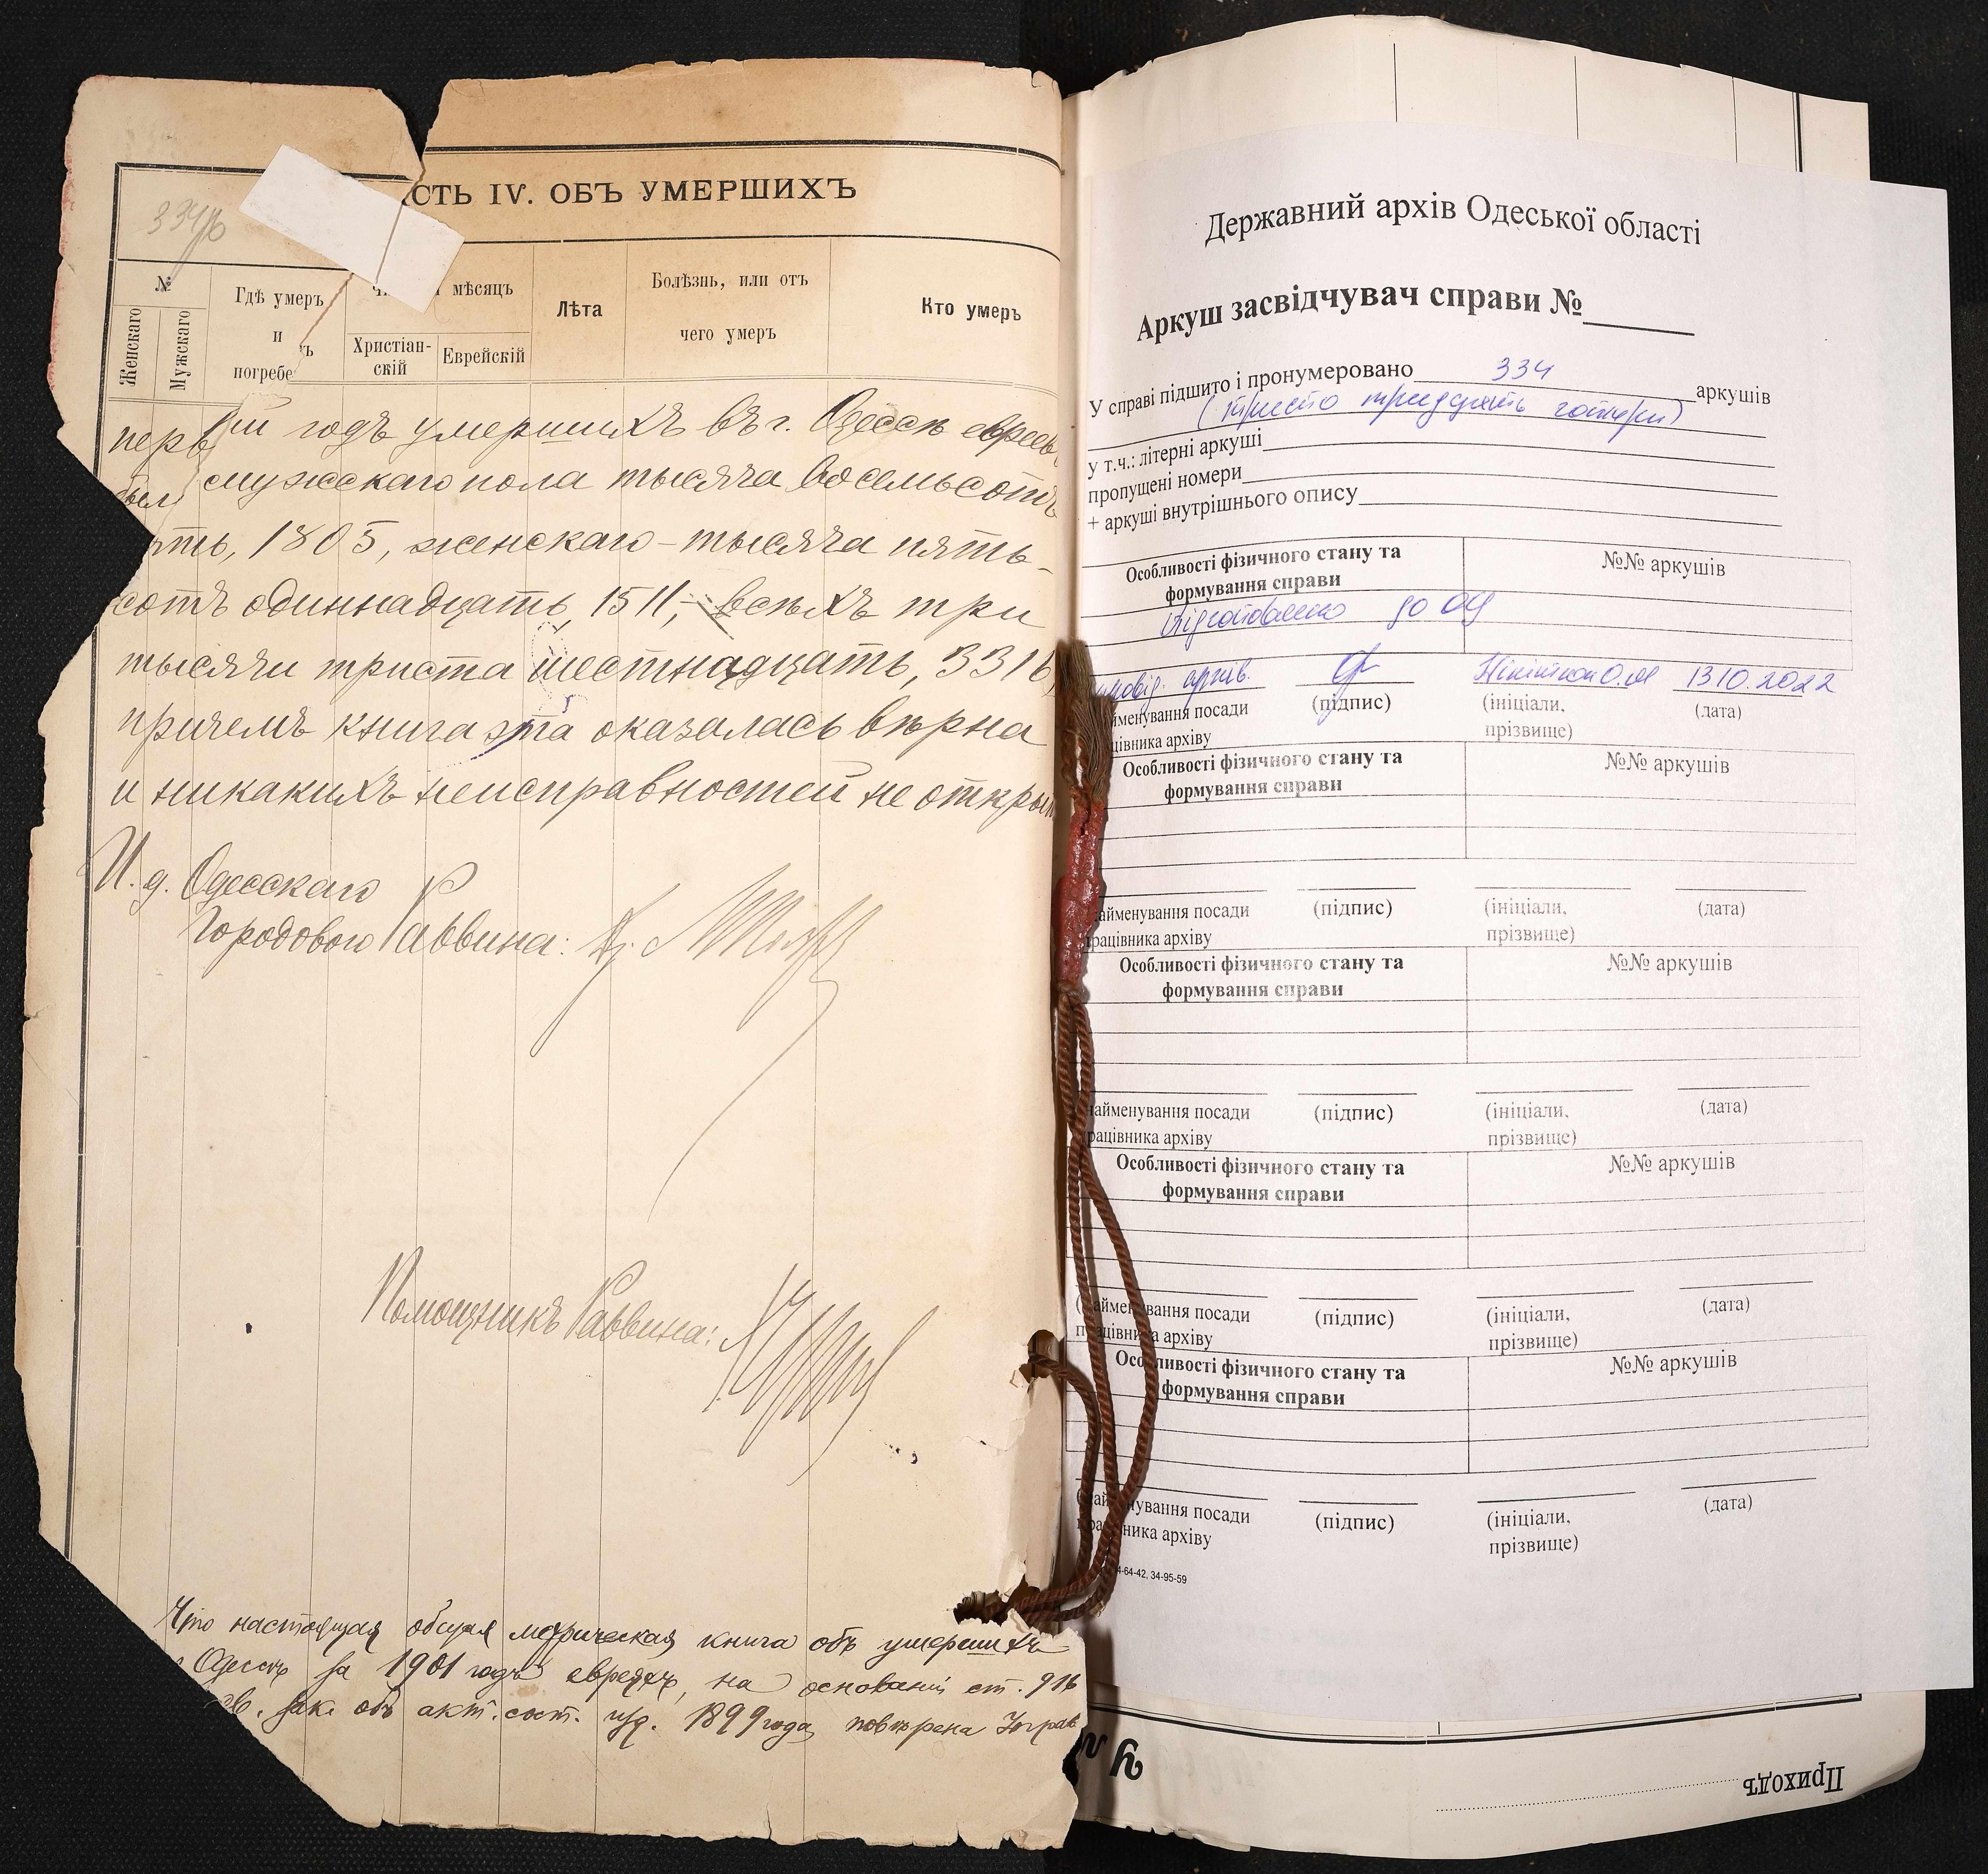 СТЬ IV. ОБЪ УМЕРШИХЪ
334
№
Женскаго
Мужскаго
Гдѣ умеръ
и
погребе
мѣсяцъ
Христіан-
скій
Еврейскій
Лѣта
Болѣзнь, или отъ
чего умеръ
Кто умеръ
перв ый годъ умершихъ въ г. Одессѣ евреевъ
было мужскаго пола тысяча восемьсотъ
пять, 1805, женскаго - тысяча пять-
сотъ одиннадцать, 1511, всѣхъ три
тысячи триста шестнадцать, 3316,
причемъ книга эта оказалась вѣрна
и никакихъ неисправностей не открыт
И. д. Одесскаго
Городового Раввина:
Помощникъ Раввина:
Что настоящая общая метрическая книга объ умершихъ
Одессѣ за 1901 годъ евреяхъ, на основаніи ст. 916
св. зак. объ акт. сост. изд. 1899 года, повѣрена Управ
Державний архів Одеської області
Аркуш засвідчувач справи №
У справі підшито і пронумеровано 334 аркушів
(триста тридцять чотири)
у т.ч.: літерні аркуші
пропущені номери
+ аркуші внутрішнього опису
Особливості фізичного стану та
формування справи
№№ аркушів
Підготовлено до ОЦ
архів. 13.10.2022
йменування посади
цівника архіву
(підпис)
(ініціали,
прізвище)
(дата)
Особливості фізичного стану та
формування справи
№№ аркушів
айменування посади
рацівника архіву
(підпис)
(ініціали,
прізвище)
(дата)
Особливості фізичного стану та
формування справи
№№ аркушів
айменування посади
рацівника архіву
(підпис)
(ініціали,
прізвище)
(дата)
Особливості фізичного стану та
формування справи
№№ аркушів
(найменування посади
працівника архіву
(підпис)
(ініціали,
прізвище)
(дата)
Особливості фізичного стану та
формування справи
№№ аркушів
(найменування посади
працівника архіву
(підпис)
(ініціали,
прізвище)
(дата)
4-64-42, 34-95-59
Приходъ